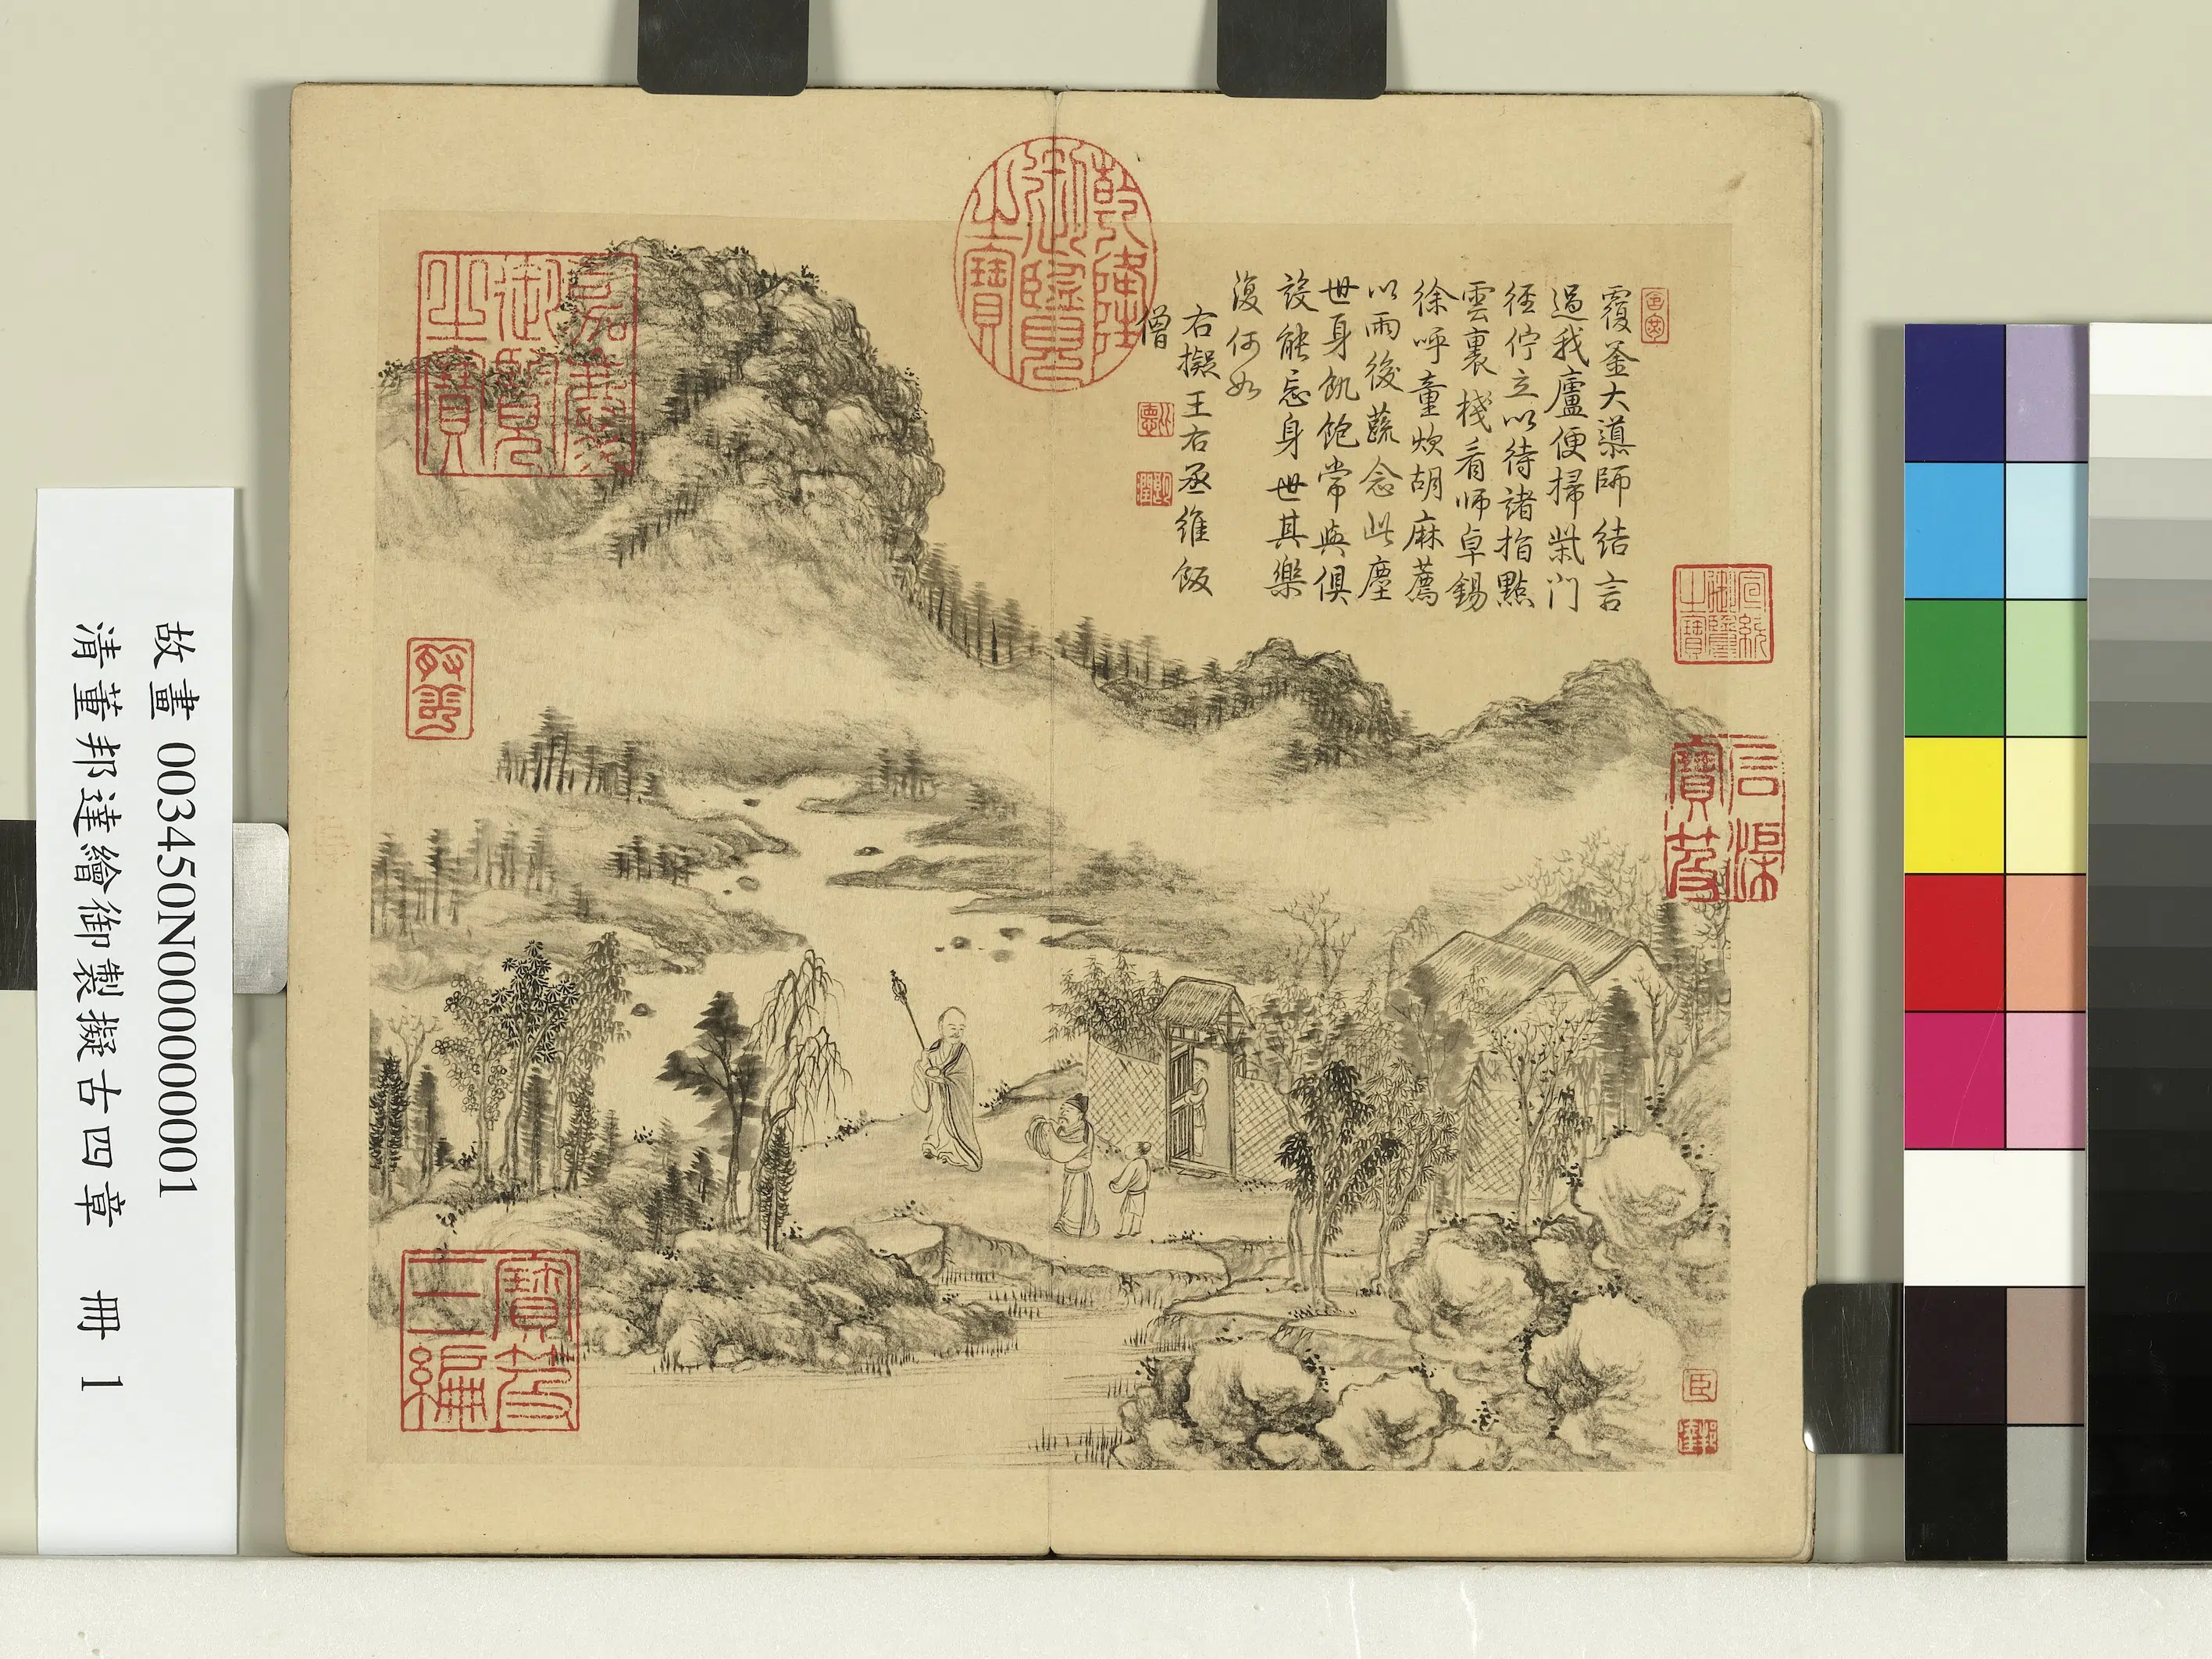 覆釜大導師結言
過我廬便掃柴門
徑佇立以待諸指點
雲裏棧看師卓錫
徐呼童炊胡麻薦
以雨後蔬念此塵
世身飢飽常與俱
設能忘身世其樂
復何如
右擬王右丞維飯
僧
乾隆御覽之寶
嘉慶御覽之寶
宣統御覽之寶
石渠寶笈
寶笈三編
臣
邦達
故畫 003450N000000001
清董邦達繪御製擬古四章 冊 1